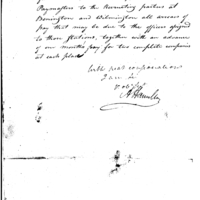 Paymasters to the Recruiting parties at
Bennington and Wilmington all arrears of
pay that may be due to the officers assigned
to those stations, together with an advance
of one months pay for two complete companies
at each place
With great consideration
I am Sir
A Hamilton